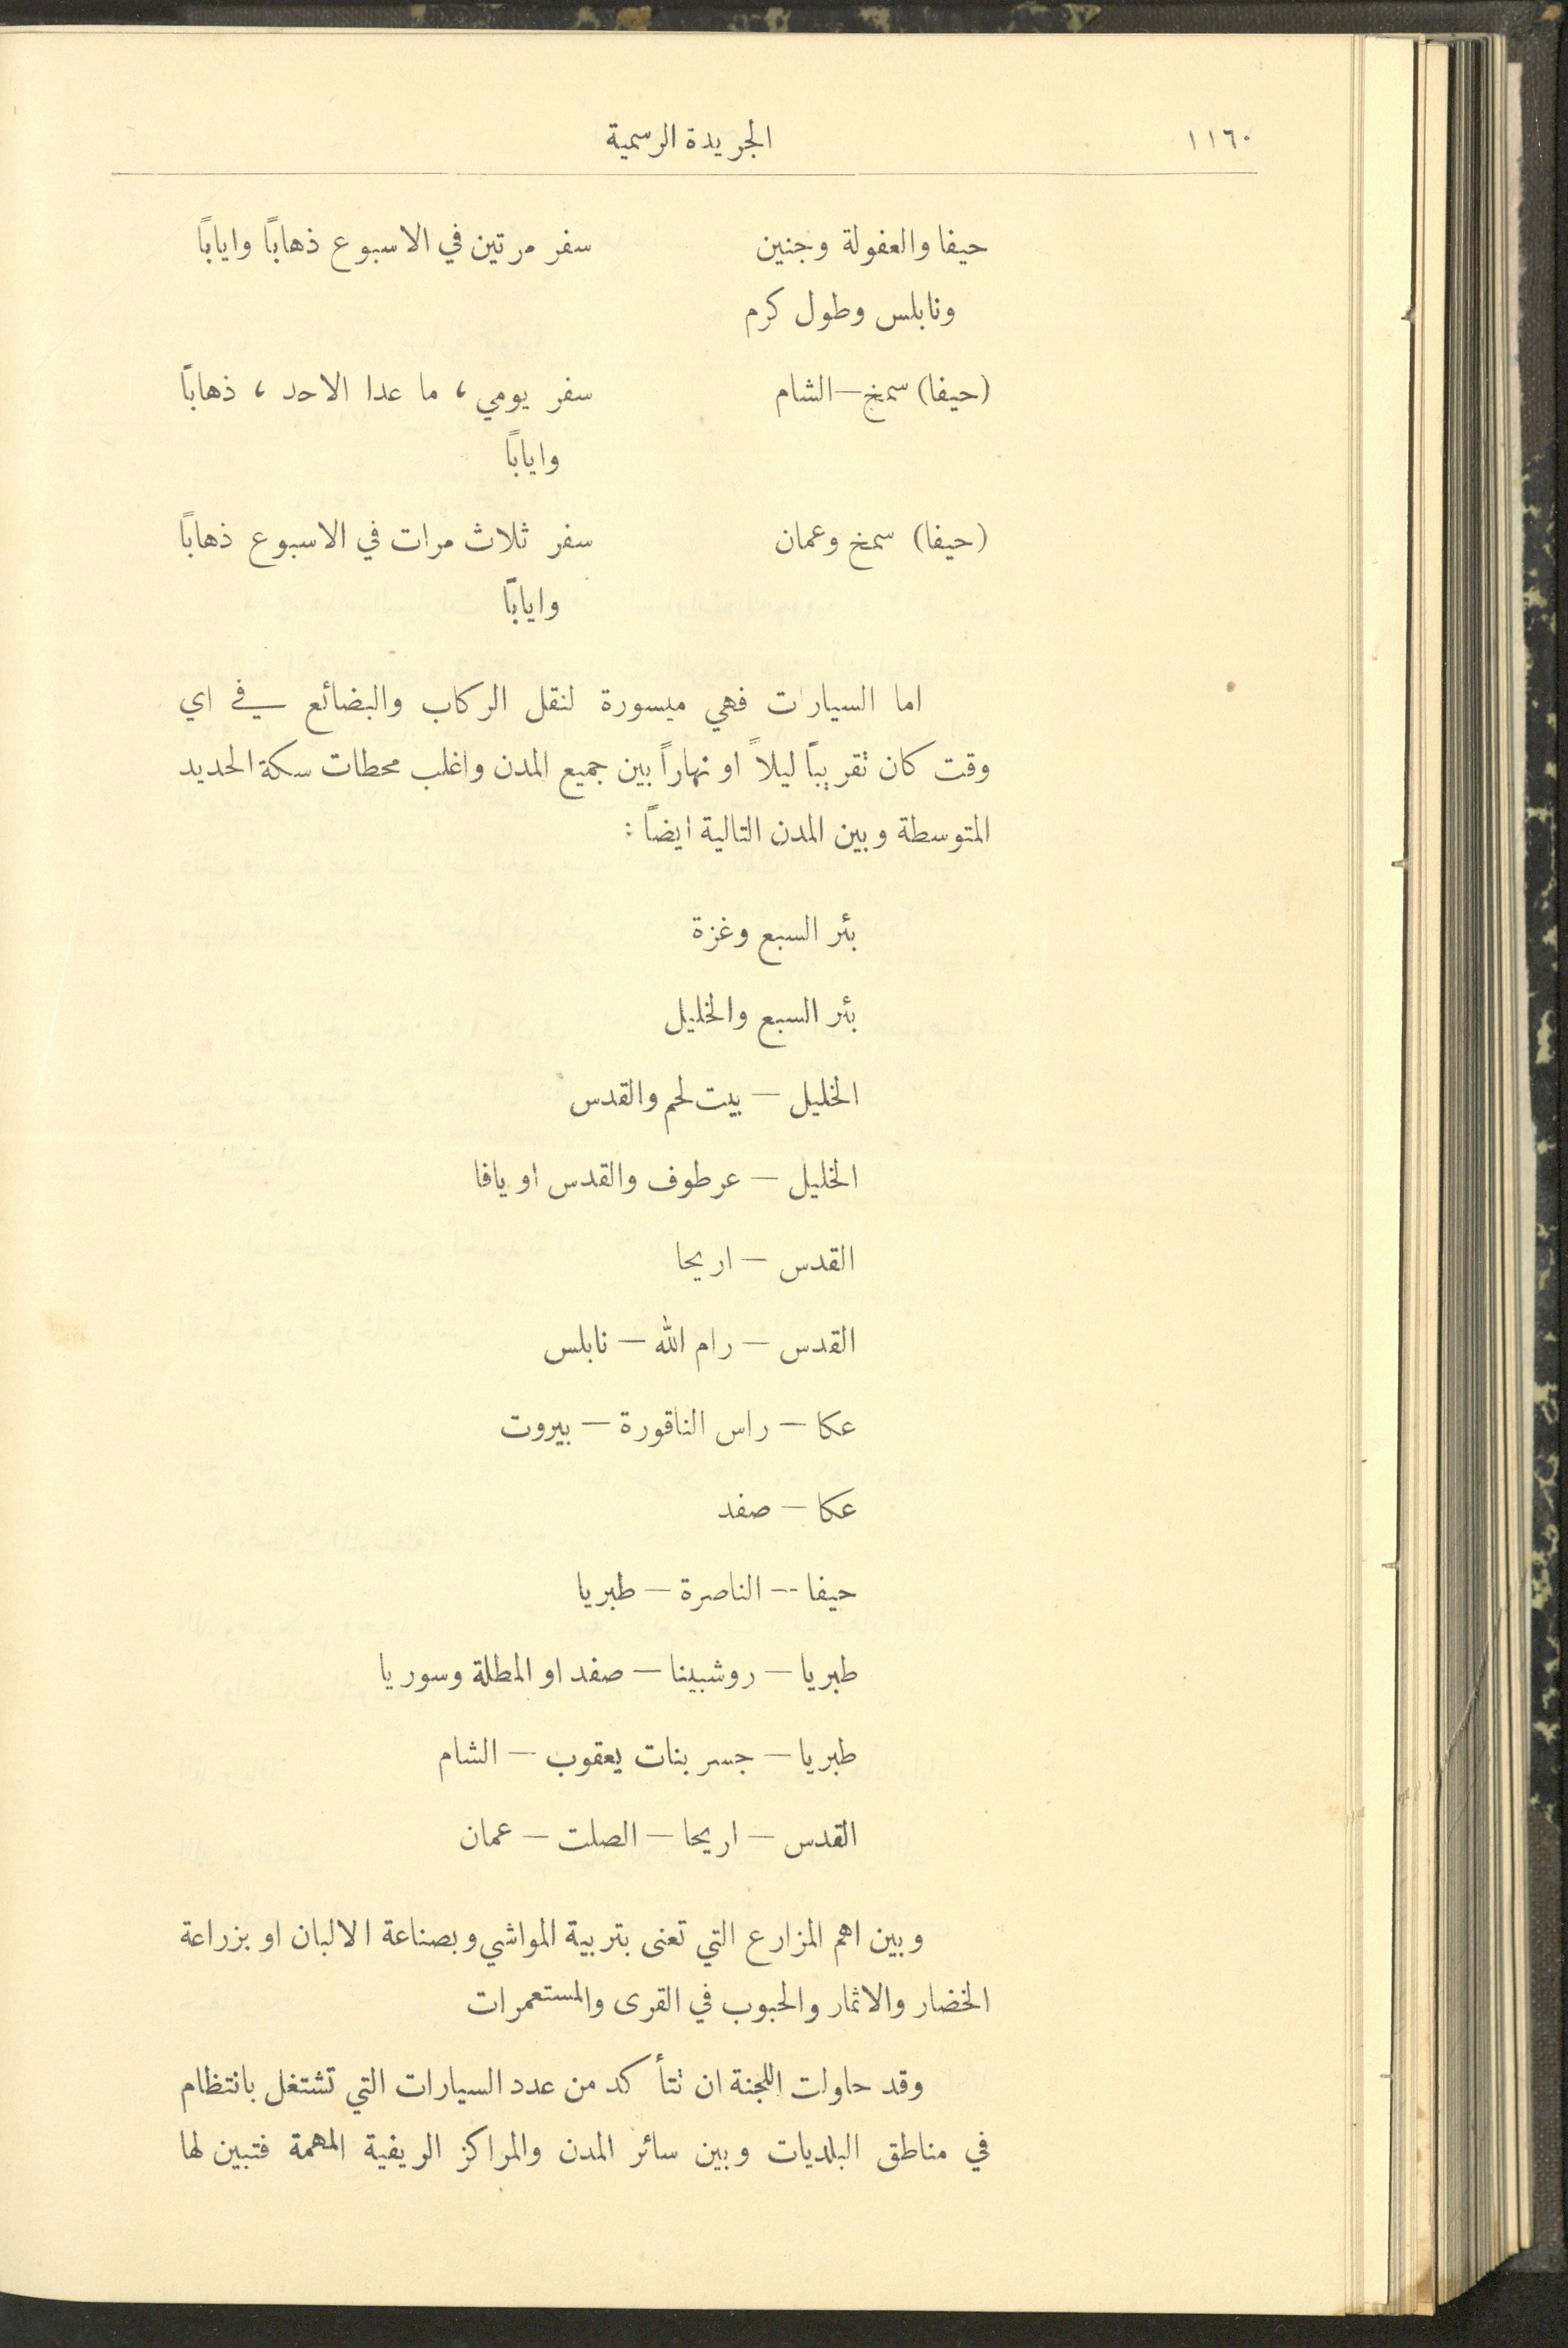 ١١٦٠ الجريدة الرسمية
حيفا والعفولة وجنين سفر مرتين في الاسبوع ذهاباً واياباً
ونابلس وطول كرم
(حيفا) سمخ—الشام سفر يومي ، ما عدا الاحد ، ذهاباً
واياباً
(حيفا) سمخ وعمان سفر ثلاث مرات في الاسبوع ذهاباً
واياباً
اما السيارات فهي ميسورة لنقل الركاب والبضائع في اي
وقت كان تقريباً ليلاً او نهاراً بين جميع المدن واغلب محطات سكة الحديد
المتوسطة وبين المدن التالية ايضاً :
بئر السبع وغزة
بئر السبع والخليل
الخليل — بيت لحم والقدس
الخليل — عرطوف والقدس او يافا
القدس — اريحا
القدس — رام الله — نابلس
عكا — راس الناقورة — بيروت
عكا — صفد
حيفا -- الناصرة — طبريا
طبريا — روشبينا — صفد او المطلة وسوريا
طبريا — جسر بنات يعقوب — الشام
القدس — اريحا — الصلت — عمان
وبين اهم المزارع التي تعنى بتربية المواشي وبصناعة الالبان او بزراعة
الخضار والاثمار والحبوب في القرى والمستعمرات
وقد حاولت اللجنة ان تتأكد من عدد السيارات التي تشتغل بانتظام
في مناطق البلديات وبين سائر المدن والمراكز الريفية المهمة فتبين لها